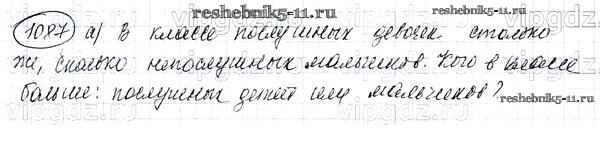 reshebnik5-11.ru
1087 а) В классе послушных девочек столько
же, сколько непослушных мальчиков. Кого в классе
больше: послушных детей или мальчиков?
reshebnik5-11.ru